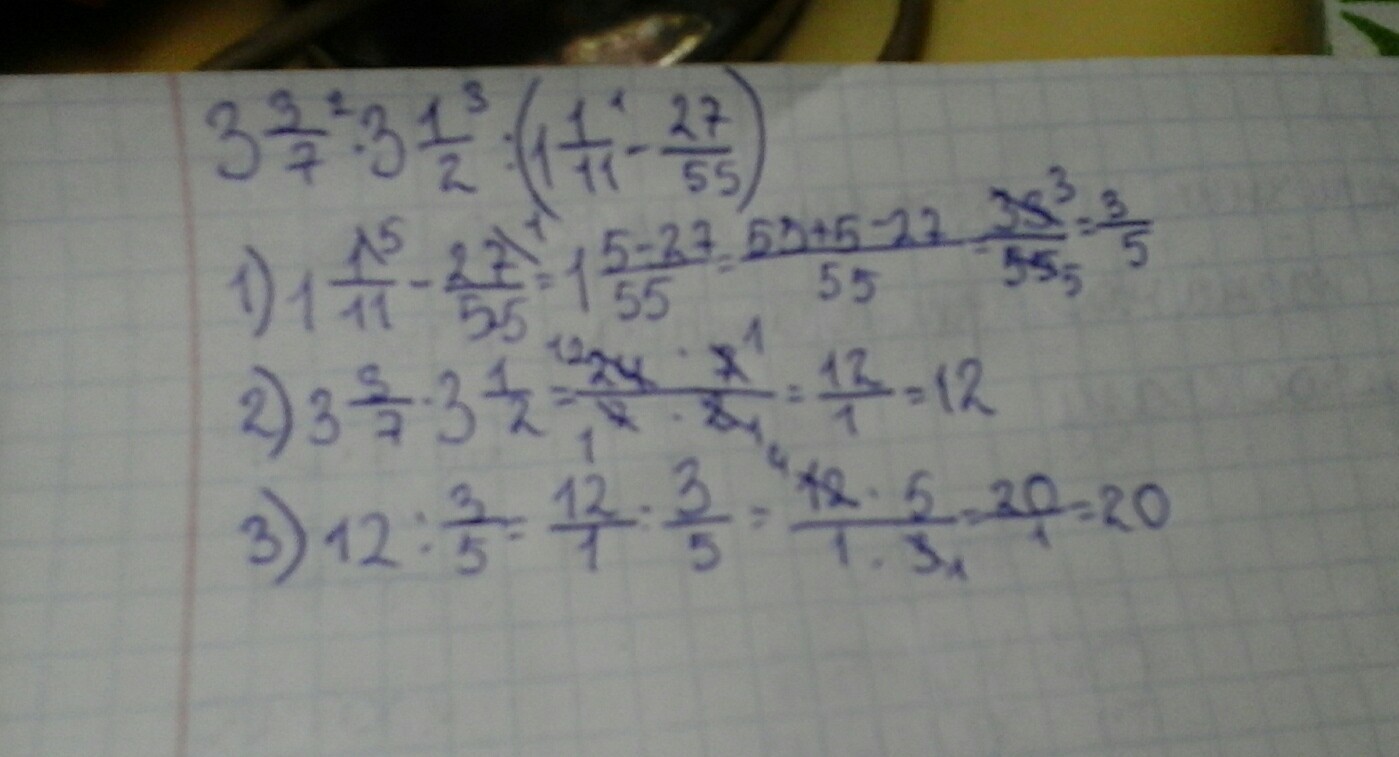 3 3/7 ² · 3 1/2 ³ : (1 1/11 ¹ - 27/55)
1) 1 1/11 ⁵ - 27/55 ¹ = 1 5-27/55 = 55+5-27/55 = 33 ³/55 ₅ = 3/5
2) 3 3/7 · 3 1/2 = ¹² 24 · 7 ¹/₁ 7 · 2 ₁ = 12/1 = 12
3) 12 : 3/5 = 12/1 : 3/5 = ⁴ 12 · 5/1 · 3 ₁ = 20/1 = 20